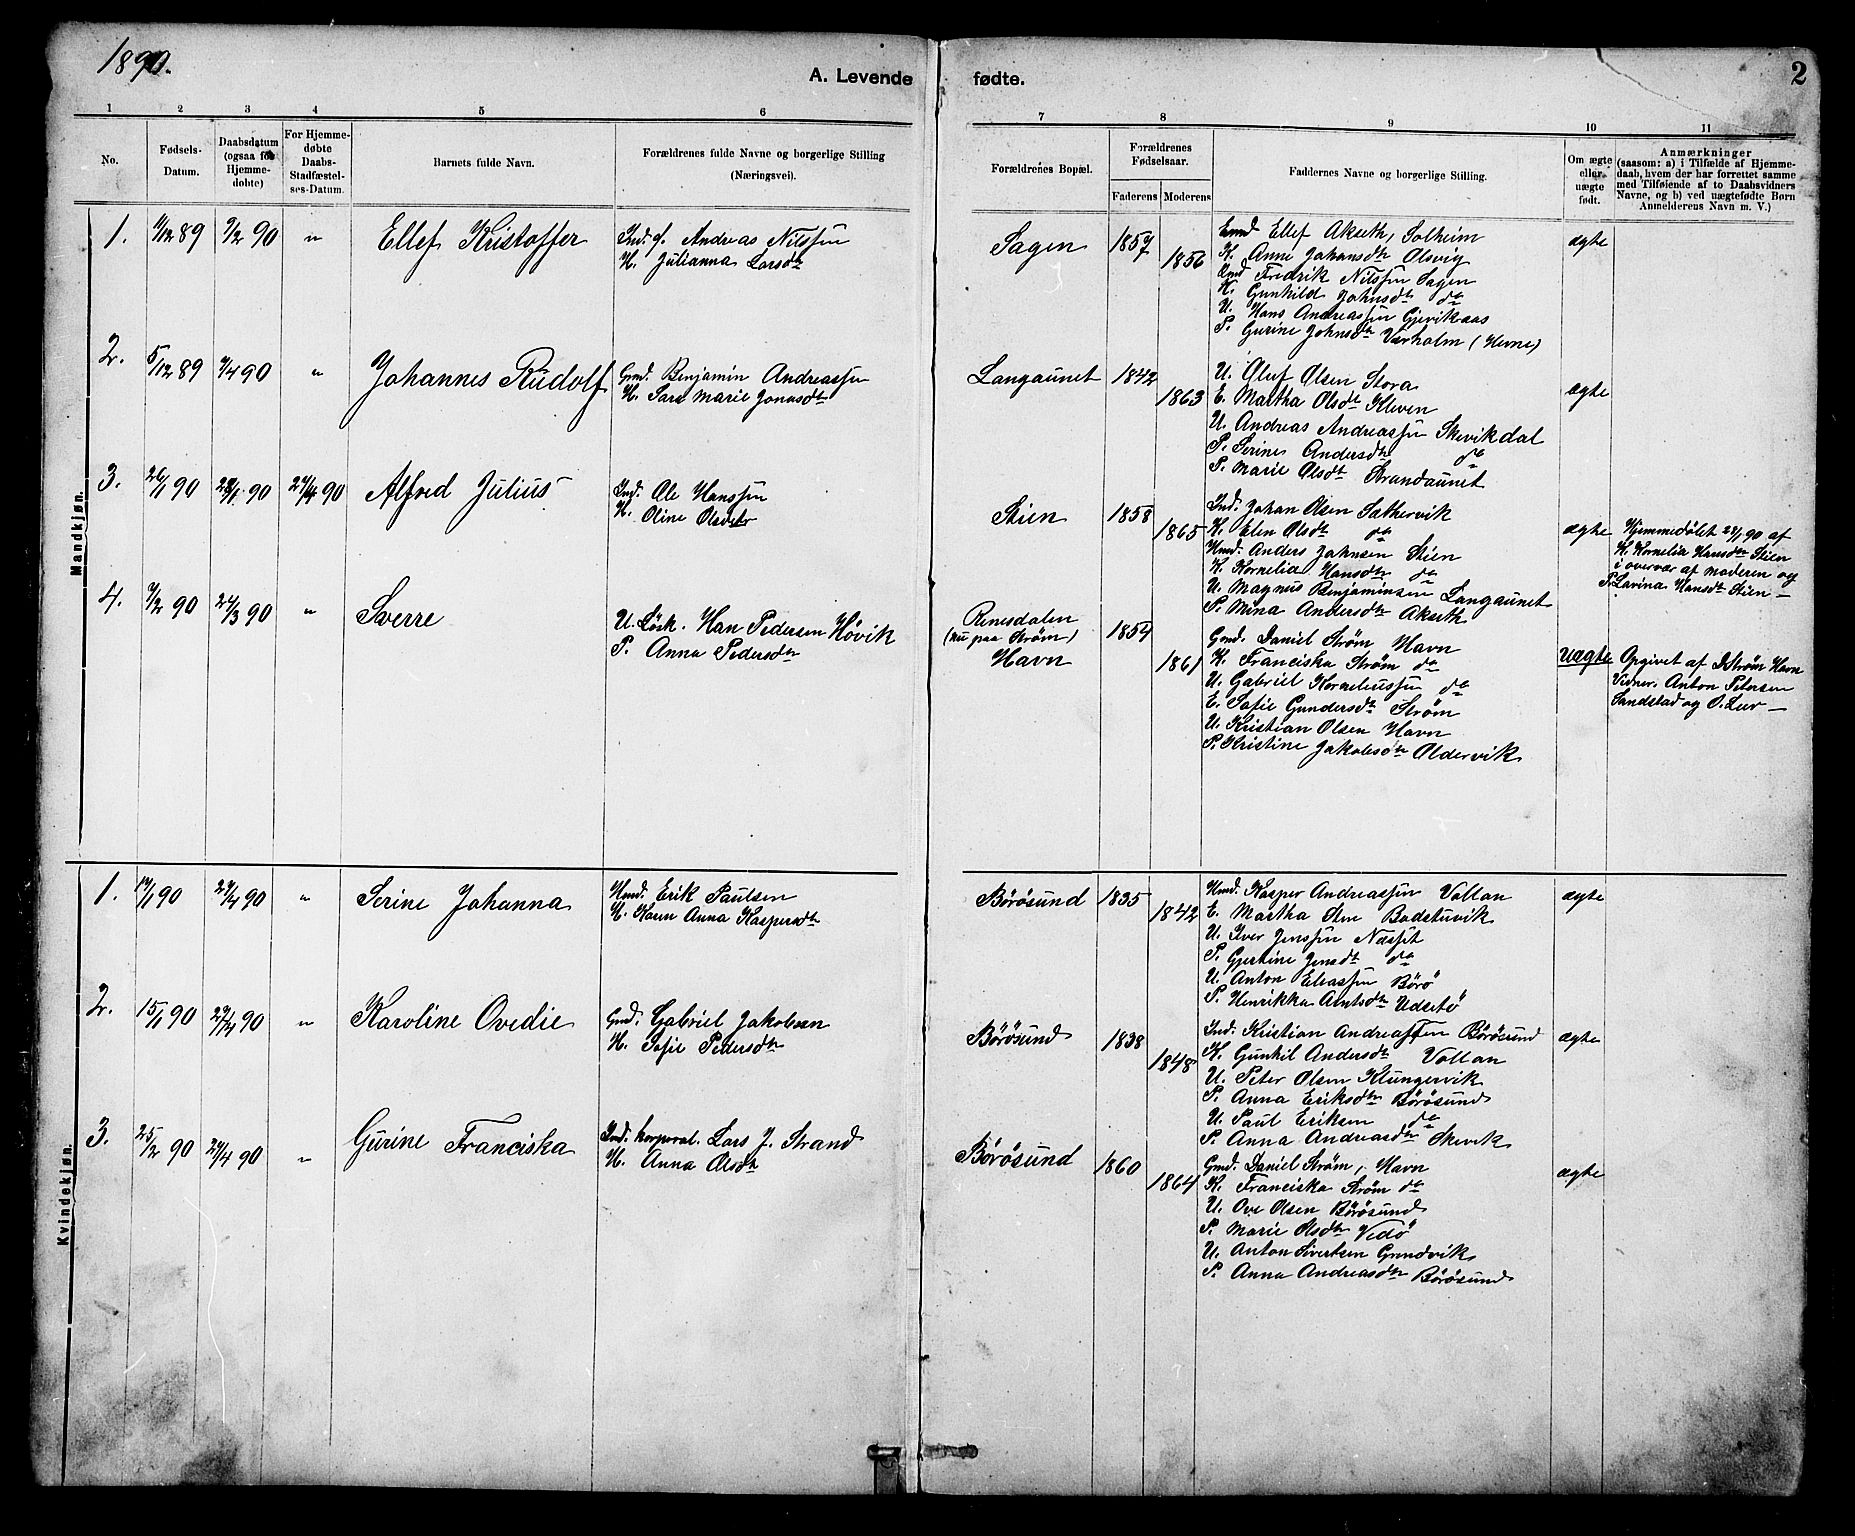 1890.
A. Levende fødte.
2
1 2 3 4 5 6 7 8 9 10 11
No.
Fødsels-Datum.
Daabsdatum (ogsaa for Hjemme-døbte)
For Hjemme-døbte Daabs-Stadfæstel-ses-Datum.
Barnets fulde Navn.
Forældrenes fulde Navne og borgerlige Stilling (Næringsvei).
Forældrenes Bopæl.
Forældrenes Fødselsaar.
Faderens Moderens
Faddernes Navne og borgerlige Stilling.
Om ægte eller uægte født.
Anmærkninger
(saasom: a) i Tilfælde af Hjemme-
daab, hvem der har forrettet samme
med Tilføiende af to Daabsvidners
Navne, og b) ved uægtefødte Børn
Anmelderens Navn m. V.)
Mandkjøn.
1. 11/12 89 9/2 90 " Ellef Kristoffer
Ind. g. Andreas Nilssen
K. Julianna Larsdtr
Sagen 1857 1856
Gmd Ellef Akseth, Solheim
K. Anne Johansdtr Olsvig
Gmd Fredrik Nilssen Sagen
K. Gunhild Johnsdtr do
U. Hans Andreassen Gjevikaas
P. Gurine Johnsdtr Værholm (Hevne)
ægte
2. 5/12 89 7/4 90 " Johannes Rudolf
Gmd. Benjamin Andreassen
K. Sara Marie Jonasdtr
Langaunet 1842 1863
U. Oluf Olsen Stora
E. Martha Olsdtr Kleven
U. Andreas Andreassen Skevikdal
P. Serine Andersdtr do
P. Marie Olsdtr Strandaunet
ægte
3. 26/1 90 28/1 90 27/4 90 Alfred Julius
Ind. Ole Hanssen
K. Oline Olsdatr
Stien 1858 1865
Ind. Johan Olsen Sathervik
K. Elen Olsdtr do
Hmd. Anders Johnsen Stien
K. Kornelia Hansdtr do
U. Magnus Benjaminsen Langaunet
P. Mina Andersdtr Akseth
ægte
Hjemmedøbt 28/1 90 af
K. Kornelia Hansdtr Stien
i overvær af moderen og
P. Lavina Hansdtr Stien –
4. 7/2 90 24/3 90 " Sverre
U. Løsk. Han Pedersen Høvik
P. Anna Pedersdtr
Renesdalen
(nu paa Strøm)
Havn
1854 1861
Gmd. Daniel Strøm Havn
K. Franciska Strøm do
U. Gabriel Korneliussen do
E. Sofie Gundersdtr Strøm
U. Kristian Olsen Havn
P. Kristine Jakobsdtr Oldervik
Uægte
Opgivet af D Strøm Havn
Vidner: Anton Petersen
Sandstad og O. Lur –
Kvindekjøn.
1. 17/1 90 27/4 90 " Serine Johanna
Hmd. Erik Paulsen
K. Karen Anna Kaspersdtr
Børøsund 1835 1842
Hmd. Kasper Andreassen Vollan
E. Martha Badstuvik
U. Iver Jenssen Næsset
P. Gjertine Jensdtr do
U. Anton Eliassen Børø
P. Henrikka Arntsdtr Udsetø
ægte
2. 15/1 90 27/4 90 " Karoline Ovedie
Gmd. Gabriel Jakobsen
K. Sofie Pedersdtr
Børøsund 1838 1848
Ind. Kristian Andreassen Børøsund
K. Gunhil Andersdtr Vollan
U. Peter Olsen Klungervik
P. Anna Eriksdtr Børøsund
U. Paul Eriksen do
P. Anna Andreasdtr Skevik
ægte
3. 25/2 90 27/4 90 " Gurine Franciska
Ind. korporal. Lars J. Strand
K. Anna Olsdtr
Børøsund 1860 1864
Gmd. Daniel Strøm, Havn
K. Franciska Strøm do
U. Ove Olsen Børøsund
P. Marie Olsdtr Vedø
U. Anton Sivertsen Grundvik
P. Anna Andreasdtr Børøsund
ægte